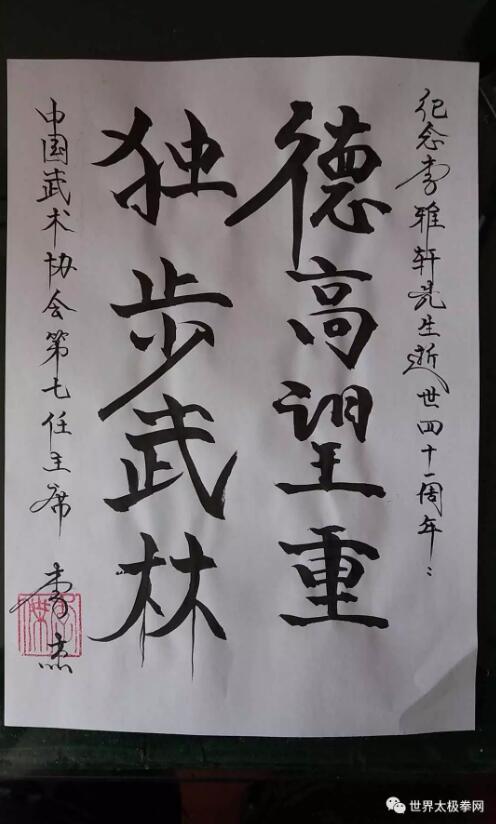 纪念李雅轩先生逝世四十一周年：
德高望重
独步武林
中国武术协会第七任主席 李杰
世界太极拳网